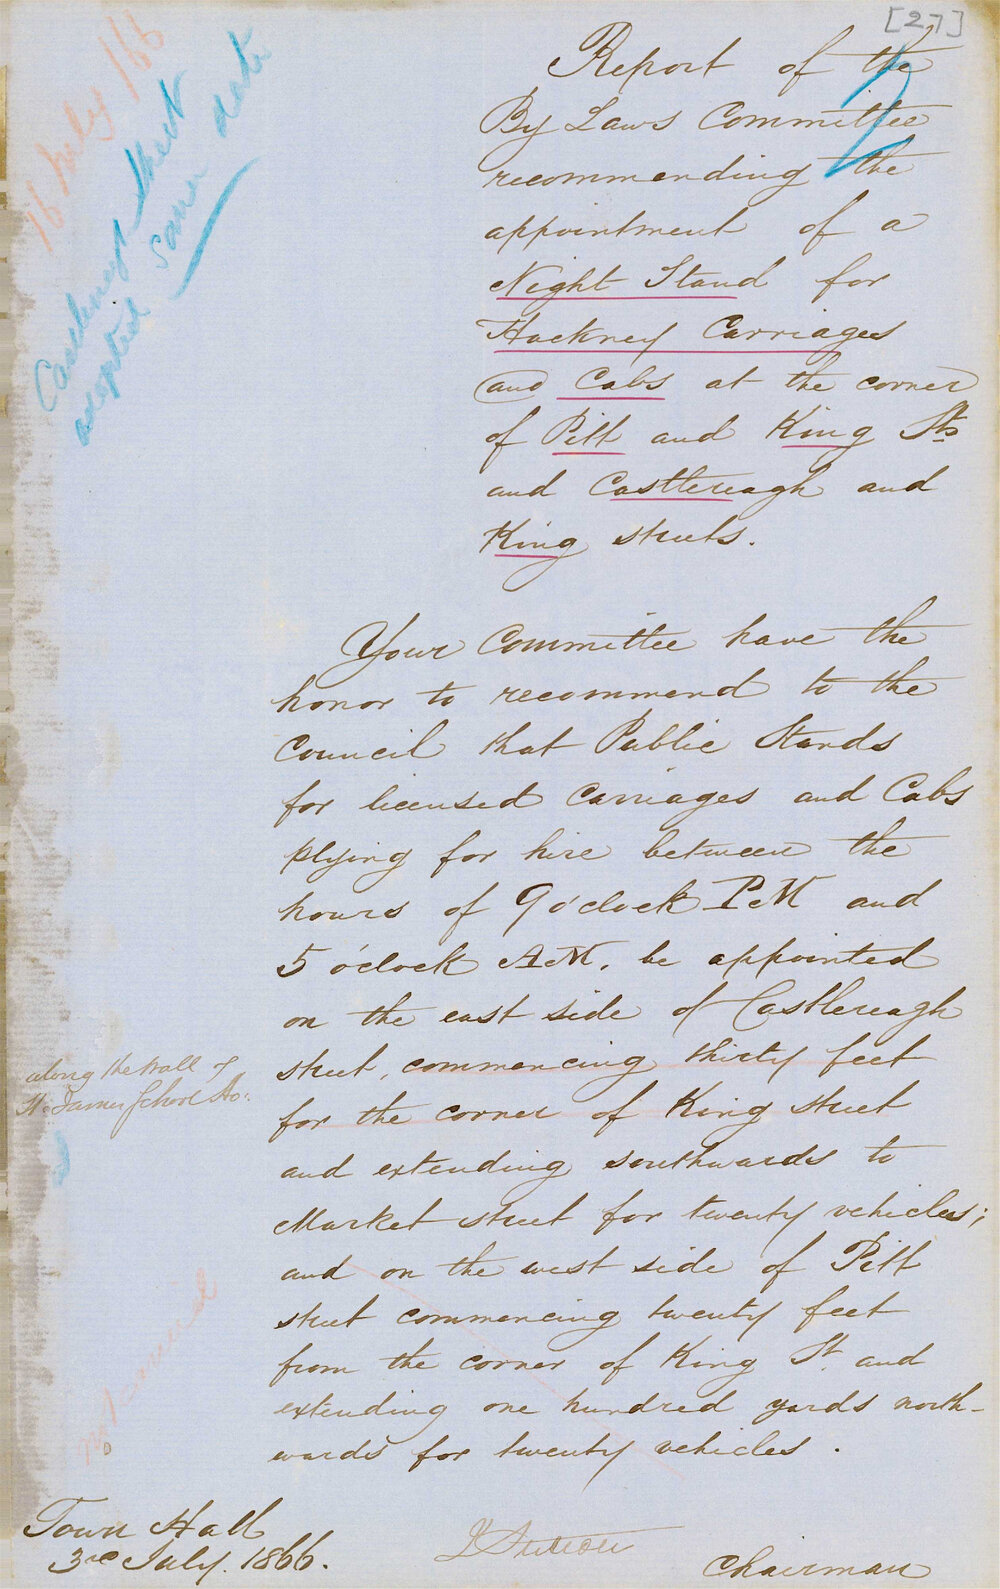 [27]
16 July /66
Castlereagh Street
adopted same date
2
Report of the
By Laws Committee
recommending the
appointment of a
Night Stand for
Hackney Carriages
and Cabs at the corner
of Pitt and King Sts
and Castlereagh and
King streets.
Your Committee have the
honor to recommend to the
Council that Public Stands
for licensed Carriages and Cabs
plying for hire between the
hours of 9 o'clock P.M and
5 o'clock A.M. be appointed
on the east side of Castlereagh
street, commencing thirty feet
for the corner of King street
along the wall of
St. James School Ho:
and extending southwards to
Market street for twenty vehicles;
and on the west side of Pitt
street commencing twenty feet
from the corner of King St. and
extending one hundred yards north-
wards for twenty vehicles.
Town Hall
3rd July. 1866.
Chairman